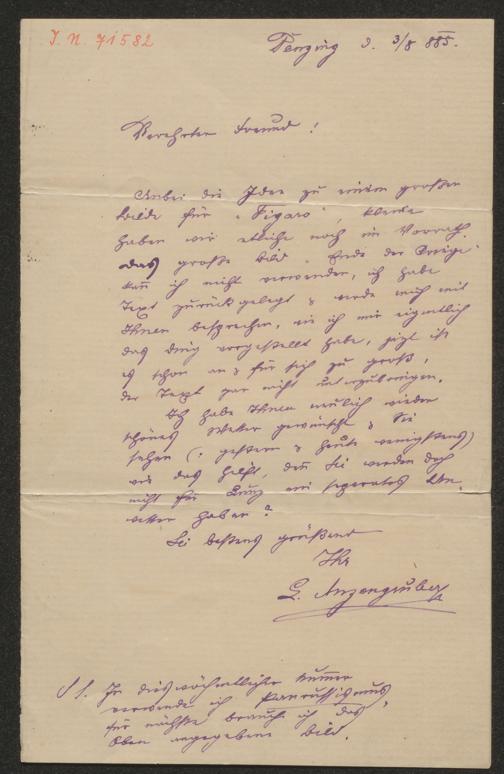 I. N. 71582
Penzing d. 3/8 885.
Verehrter Freund!
Anbei die Idee zu einem großen
Bilde für „Figaro“, kleine
haben wir etliche noch im Vorrath.
Das große Bild „Ende der
kann ich nicht verwenden, ich habe
Text zurückgelegt & werde mich mit
Ihnen besprechen, wie ich mir eigentlich
das Ding vorgestellt habe, jetzt ist
es schon an & für sich zu groß,
der Text gar nicht unterzubringen.
Ich habe Ihnen neulich wieder
schönes Wetter gewünscht & Sie
sehen (: gestern & heute wenigstens)
wie das hilft, denn Sie werden doch
nicht für Lunz ein separates Un-
wetter haben?
Sei bestens grüßend
Ihr
L. Anzengruber
In dieswöchentlicher Nummer
verwende ich Panrussismus,
für nächste brauch ich das
oben angegebene Bild.